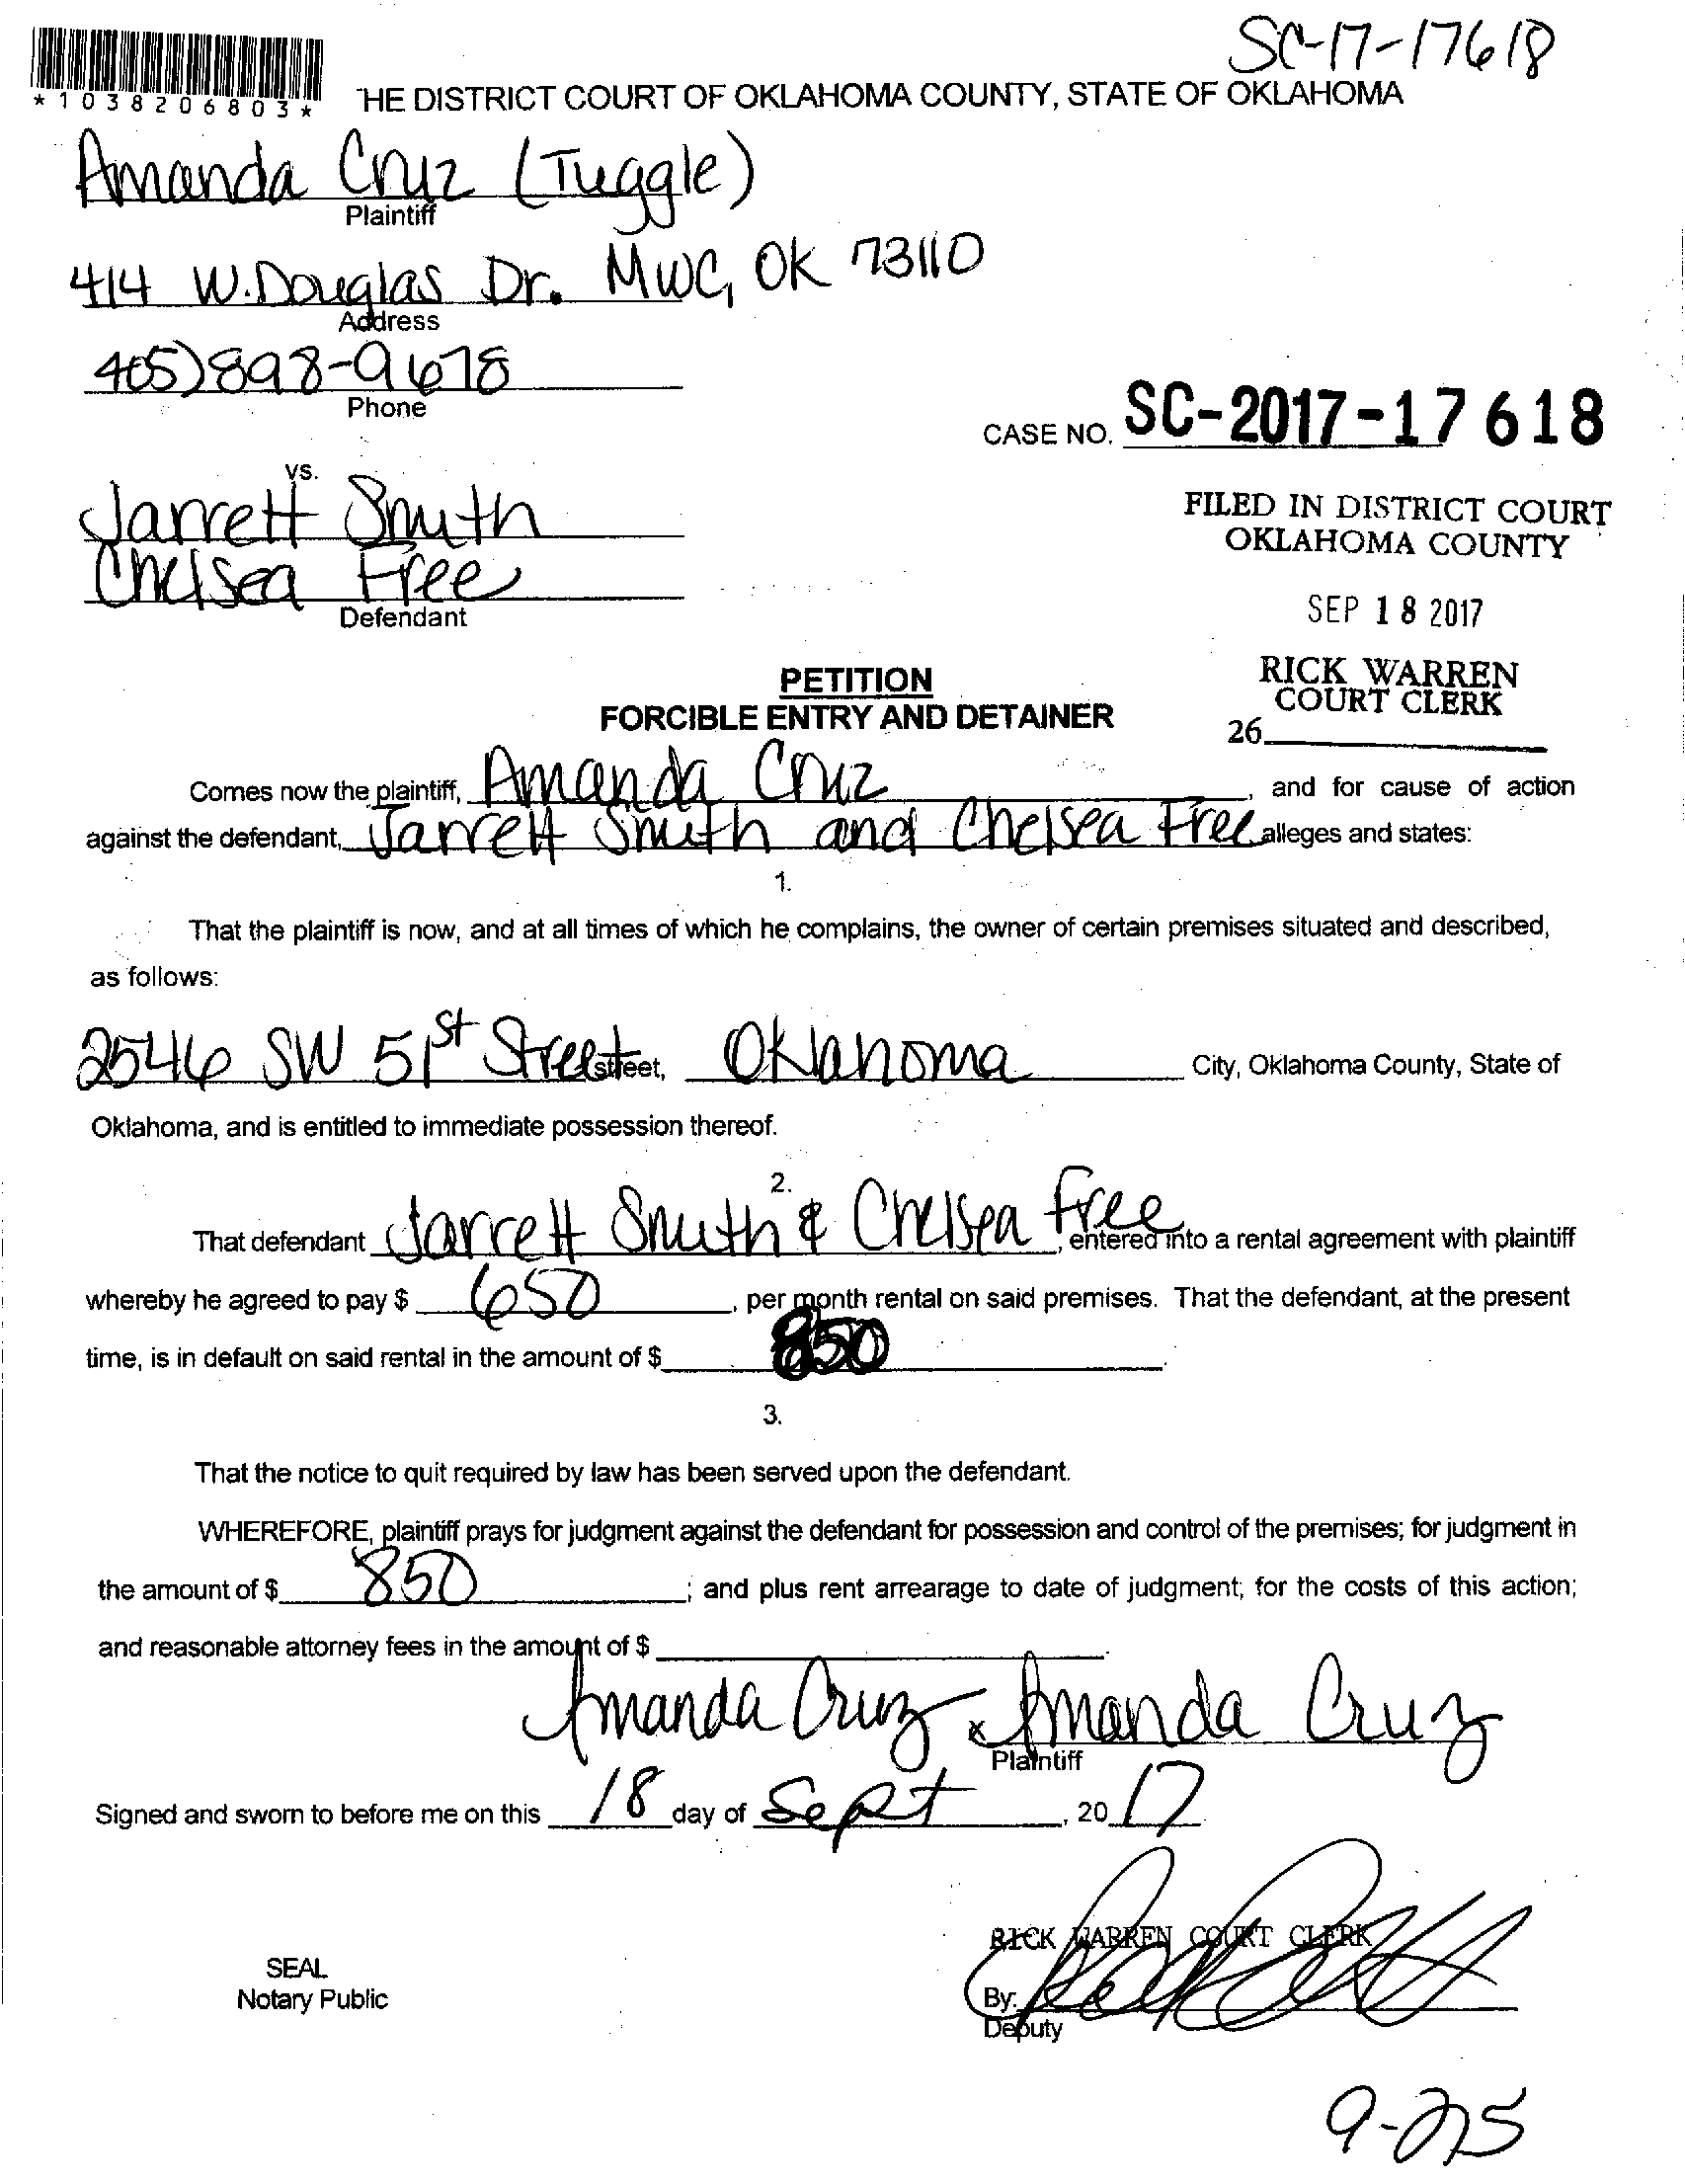 SC-17-17618
*1038206803*
THE DISTRICT COURT OF OKLAHOMA COUNTY, STATE OF OKLAHOMA
Amanda Cruz (Tuggle)
Plaintiff
414 W. Douglas Dr. MWC, OK 73110
Address
405) 898-9678
Phone
CASE NO. SC-2017-17618
vs.
Jarrett Smith
Chelsea Free
Defendant
FILED IN DISTRICT COURT
OKLAHOMA COUNTY
SEP 18 2017
RICK WARREN
COURT CLERK
26
PETITION
FORCIBLE ENTRY AND DETAINER
Comes now the plaintiff, Amanda Cruz, and for cause of action
against the defendant, Jarrett Smith and Chelsea Free alleges and states:
1.
That the plaintiff is now, and at all times of which he complains, the owner of certain premises situated and described,
as follows:
2546 SW 51st Street street, Oklahoma City, Oklahoma County, State of
Oklahoma, and is entitled to immediate possession thereof.
2.
That defendant Jarrett Smith & Chelsea Free, entered into a rental agreement with plaintiff
whereby he agreed to pay $ 650, per month rental on said premises. That the defendant, at the present
time, is in default on said rental in the amount of $ 850.
3.
That the notice to quit required by law has been served upon the defendant.
WHEREFORE, plaintiff prays for judgment against the defendant for possession and control of the premises; for judgment in
the amount of $ 850; and plus rent arrearage to date of judgment; for the costs of this action;
and reasonable attorney fees in the amount of $
Amanda Cruz x Amanda Cruz
Plaintiff
Signed and sworn to before me on this 18 day of Sept, 2017
RICK WARREN COURT CLERK
SEAL
Notary Public
By:
Deputy
9-25